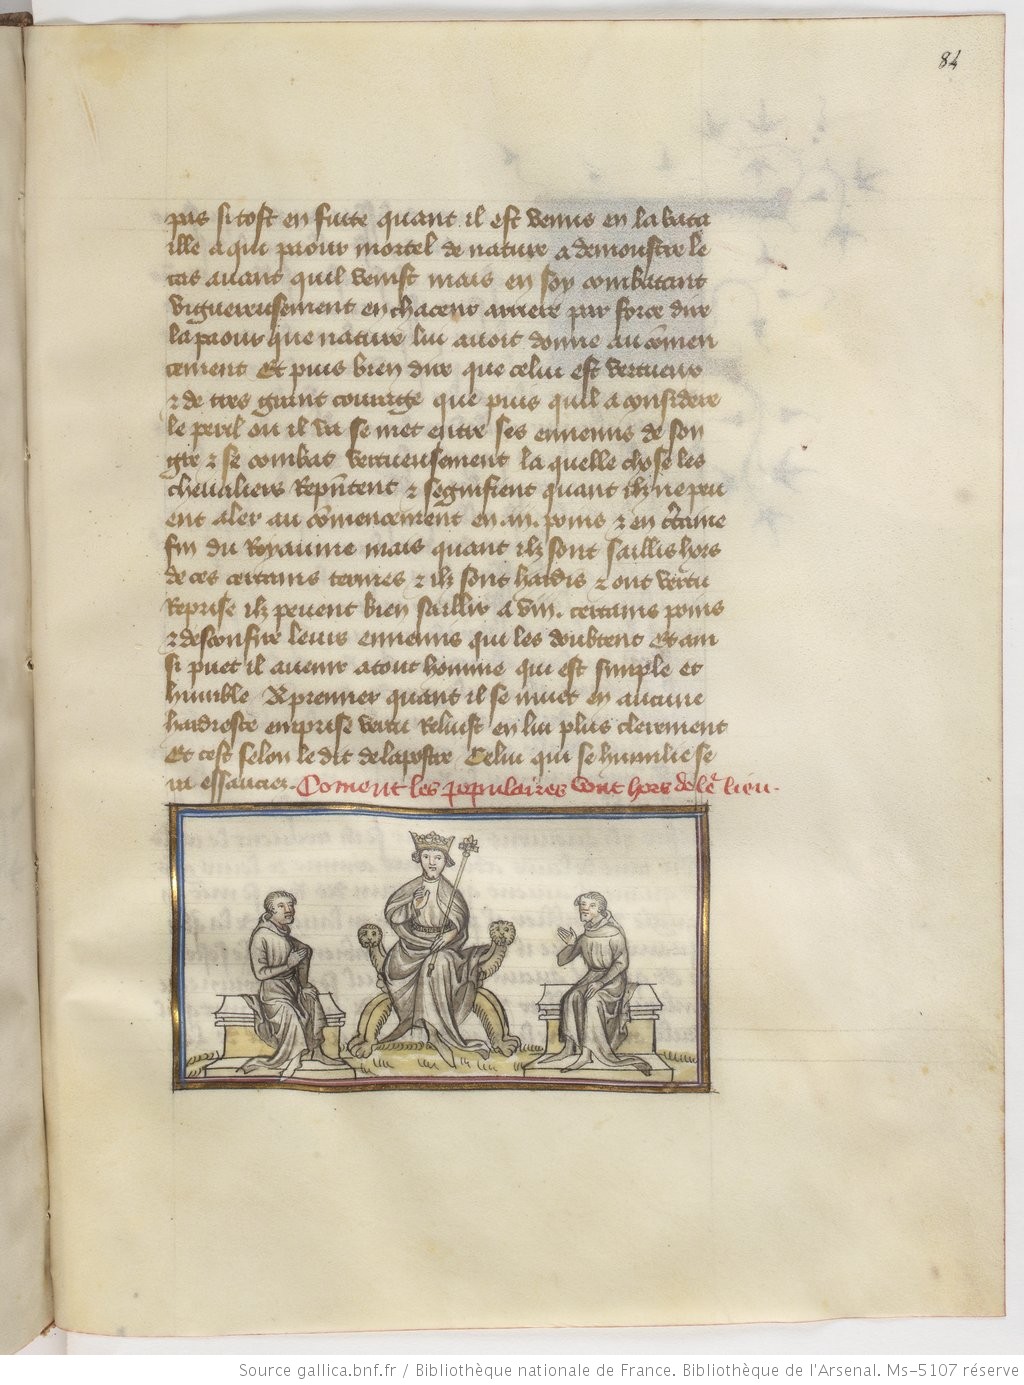 84
pas si tost en fuite quant il est venus en la bata
ille a qui paour mortel de nature a demonstre le
cas auant quil venist mais en soy combatant
viguereusement en chacent arriere par force dire
la paour que nature lui auoit donne au cōmen
cement Et puis bien dire que celui est vertueux
⁊ de tres grant courage que puis quil a considere
le peril ou il va se met entre ses ennemis de son
gre ⁊ se combat vertueusement la quelle chose les
cheualiers rep̄ntent ⁊ segnifient quant ilz ne peu
ent aler au cōmencement en .iii. poins ⁊ en c̄taine
fin du Royaume mais quant ilz sont saillis hors
de ces certains termes ⁊ ilz sont hardis ⁊ ont vertu
reprise ilz peuent bien saillir a viii. certains poins
⁊ desconfire leurs ennemis qui les doubtent Et ain
si puet il auenir a tout homme qui est simple et
humble Au premier quant il se muet en aucune
hardieste emprise vertu reluist en lui plus clerement
Et cest selon le dit de lapostre Celui qui se humilie se
ra essaucier. Coment les populaires vont hors de le² lieu.
Source gallica.bnf.fr / Bibliothèque nationale de France. Bibliothèque de l'Arsenal. Ms-5107 réserve